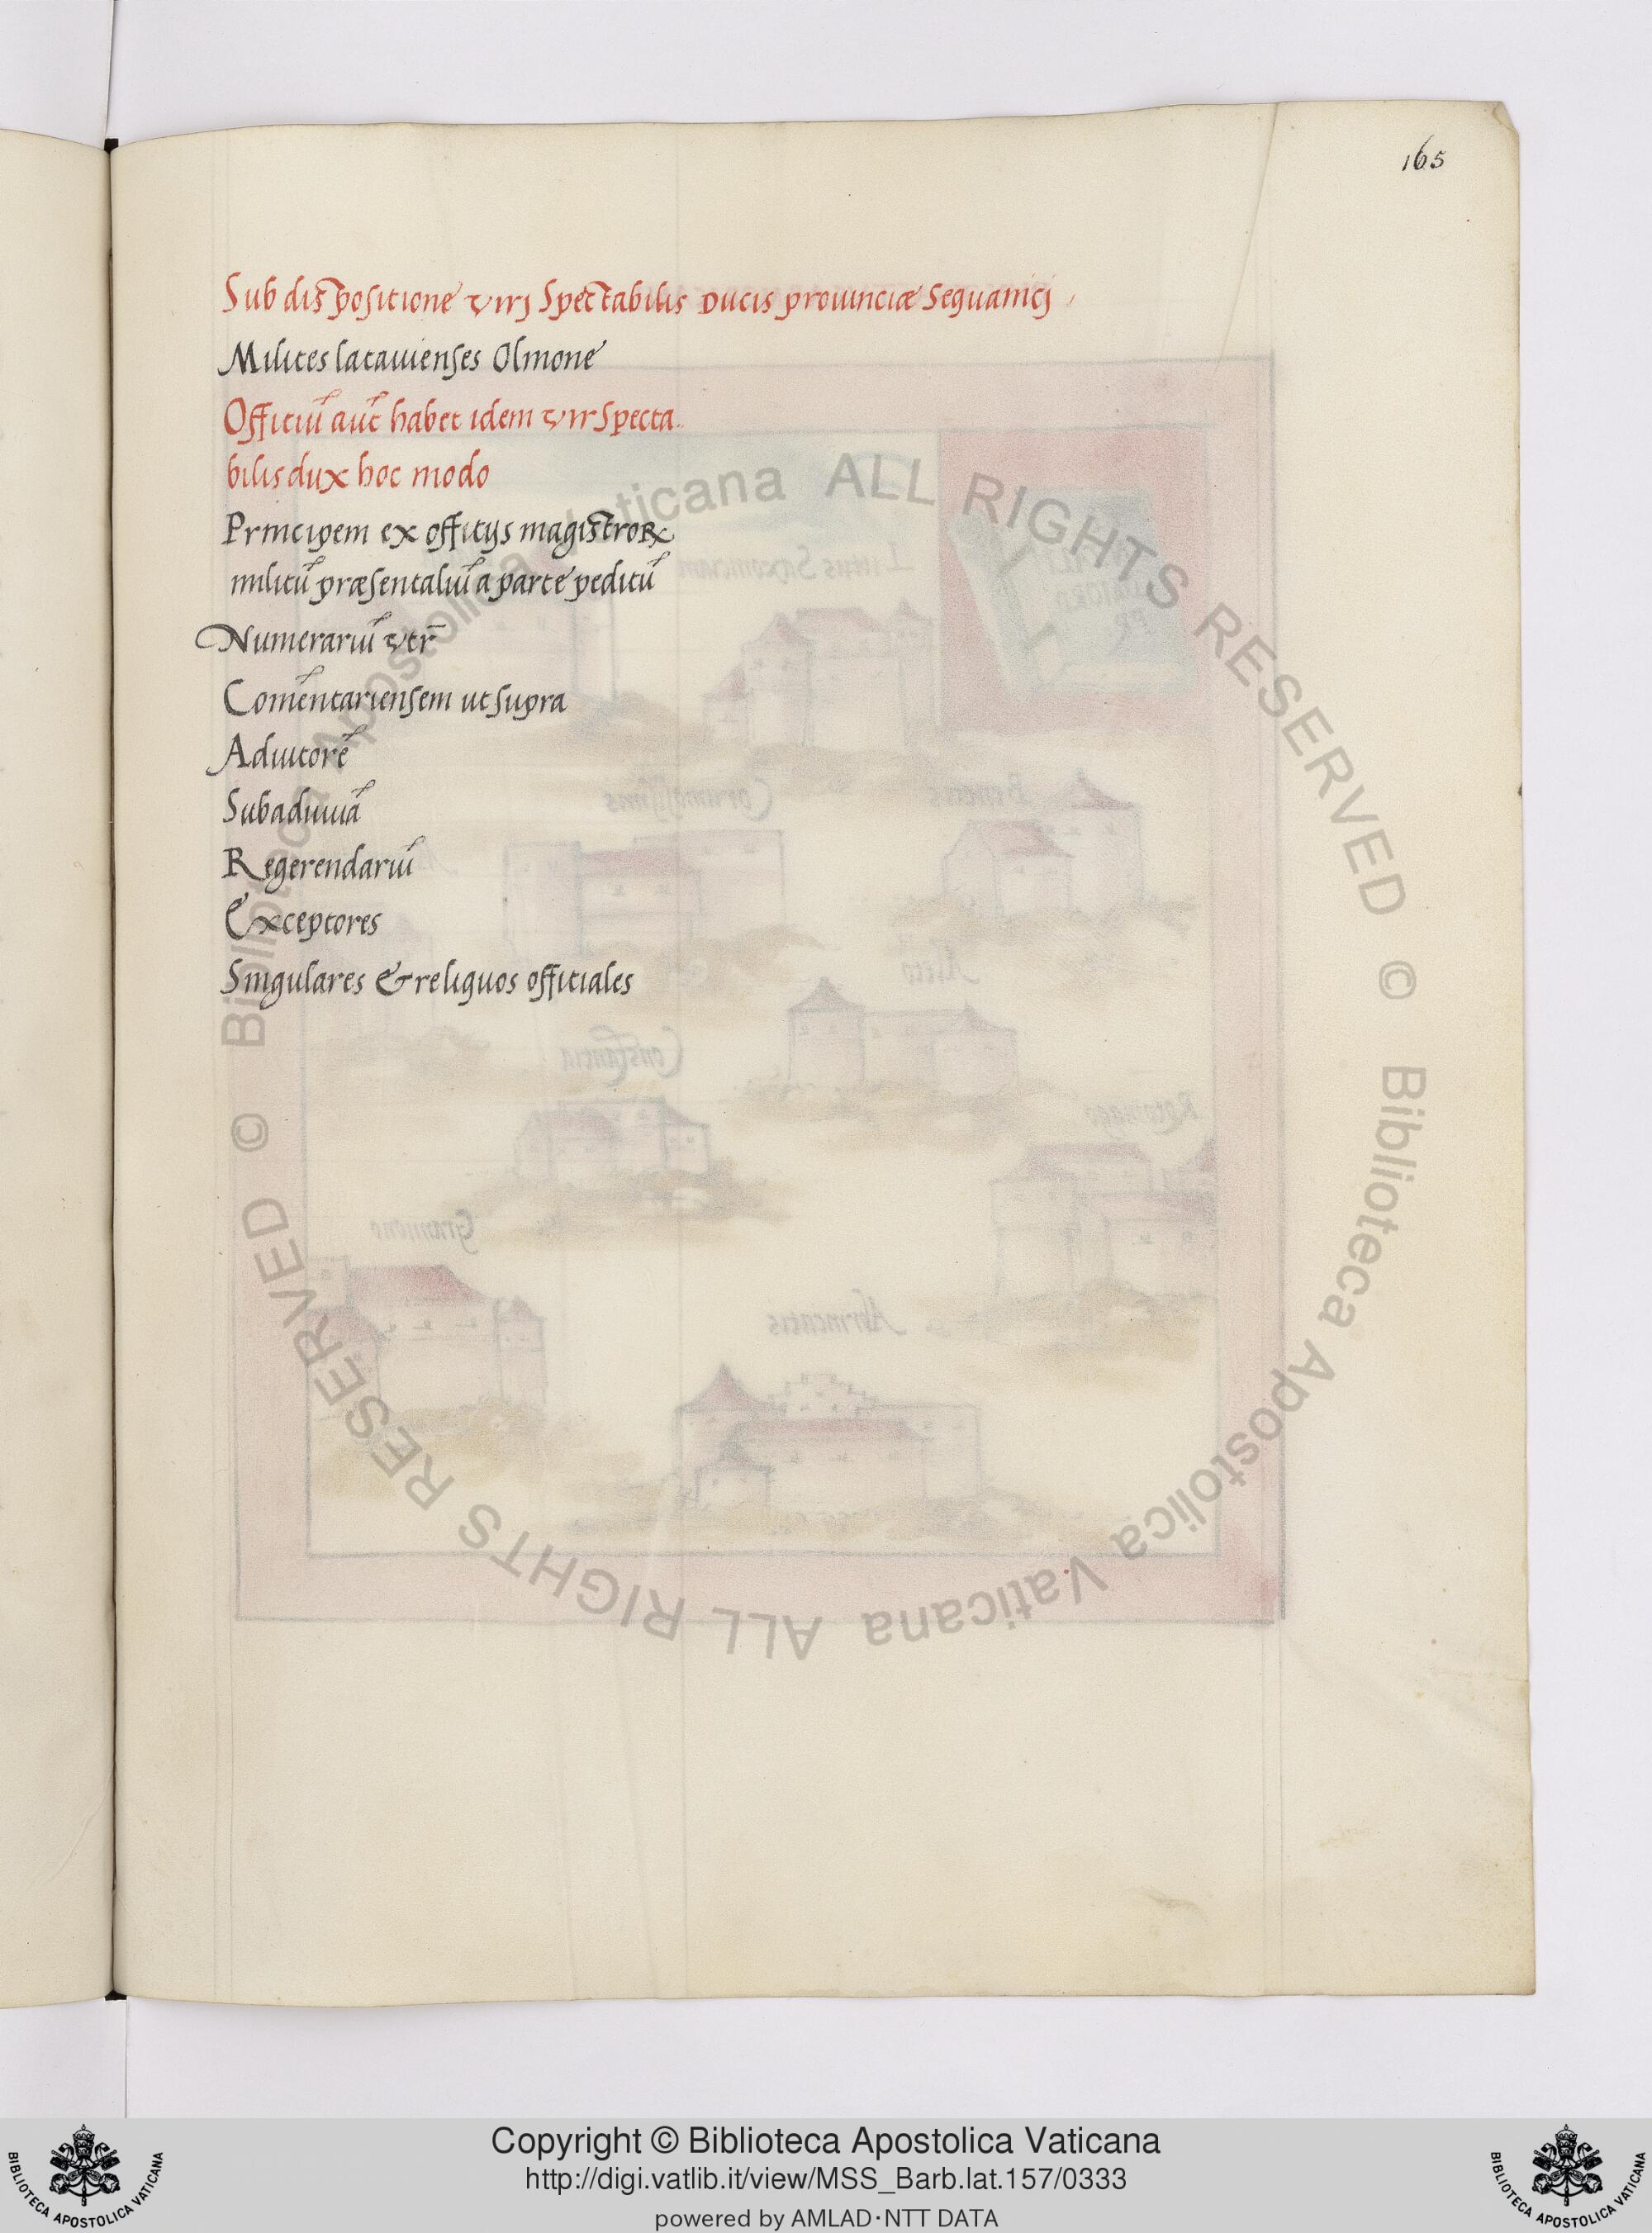 165
Sub dispositione viri Spectabilis Ducis prouinciæ Sequanicj
Milites latauienses Olmone
Officiū aūt habet idem vir Specta
bilis dux hoc modo
Principem ex officijs magistroꝝ
militū præsentaliū a parte peditū
Numerariū vtr̄
Comētariensem ut supra
Adiutorē
Subadiuuā
Regerendariū
Exceptores
Singulares & reliquos officiales
© Biblioteca Apostolica Vaticana ALL RIGHTS RESERVED © Biblioteca Apostolica Vaticana ALL RIGHTS RESERVED
Copyright © Biblioteca Apostolica Vaticana
http://digi.vatlib.it/view/MSS_Barb.lat.157/0333
powered by AMLAD·NTT DATA
BIBLIOTECA APOSTOLICA VATICANA
BIBLIOTECA APOSTOLICA VATICANA